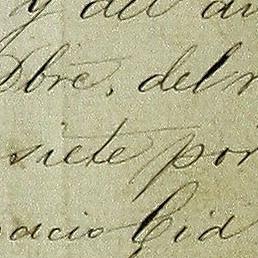 y del
Dbre. del
siete por
nacio Cid